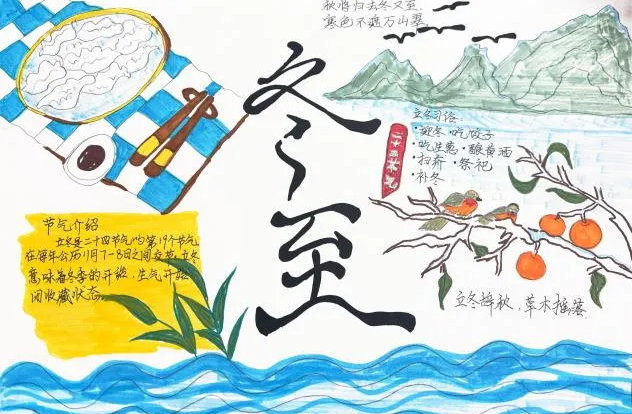 秋将归去冬又至.
寒色不遮万山
冬至
立冬习俗:
·迎冬·吃饺子
·吃生葱·酿黄酒
·扫疥·祭祀
·补冬
二十四节气
节气介绍
立冬是二十四节气的第19个节气
在每年公历11月7-8日之间交节,立冬
意味着冬季的开始,生气开始
闭收藏状态。
立冬辞秋,草木摇落